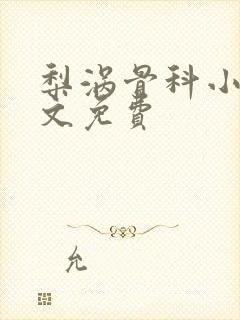 梨涡骨科小
文免費
允